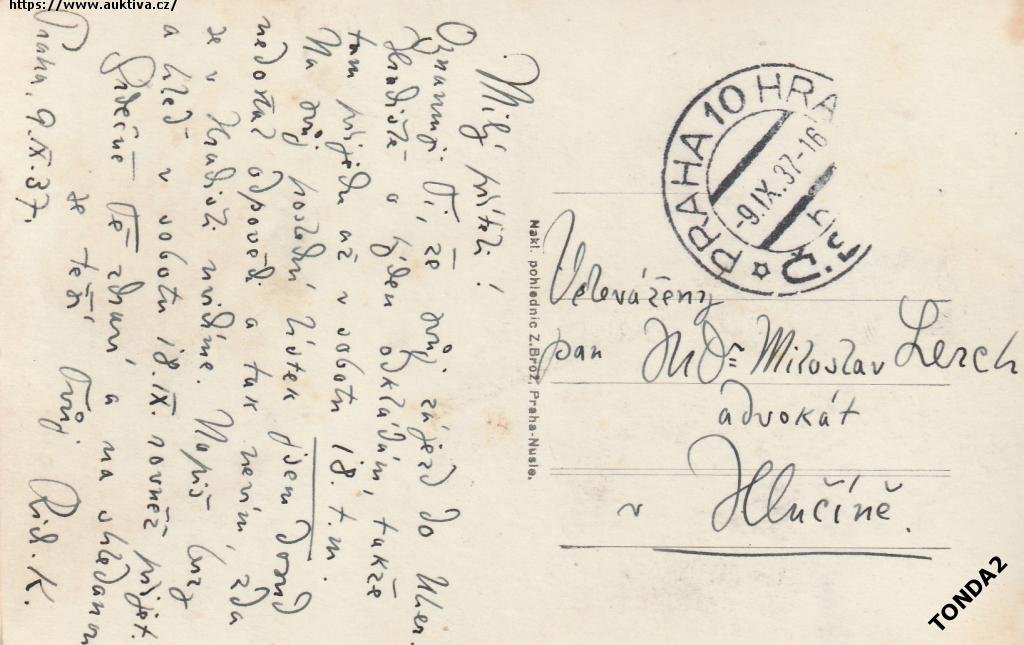 https://www.auktiva.cz/
Praha, 9.IX.37.
Milý příteli!
Oznamuji Ti, že svůj zájezd do Uher.
Hradiště o týden odkládám, takže
tam přijedu až v sobotu 18. t.m.
Na svůj poslední lístek jsem dosud
nedostal odpovědi a tak nevím, zda
se v Hradišti uvidíme. Napiš brzy
a hleď v sobotu 18.IX. rovněž přijet.
Srdečně Tě zdraví a na shledanou
se těší Tvůj Rud. K.
Nakl. pohlednic Z. Brož, Praha-Nusle.
PRAHA 10 HRA
-9.IX.37-16
Velevážený
pan JUDr Miloslav Lerch
advokát
v Hlučíně.
TONDA2